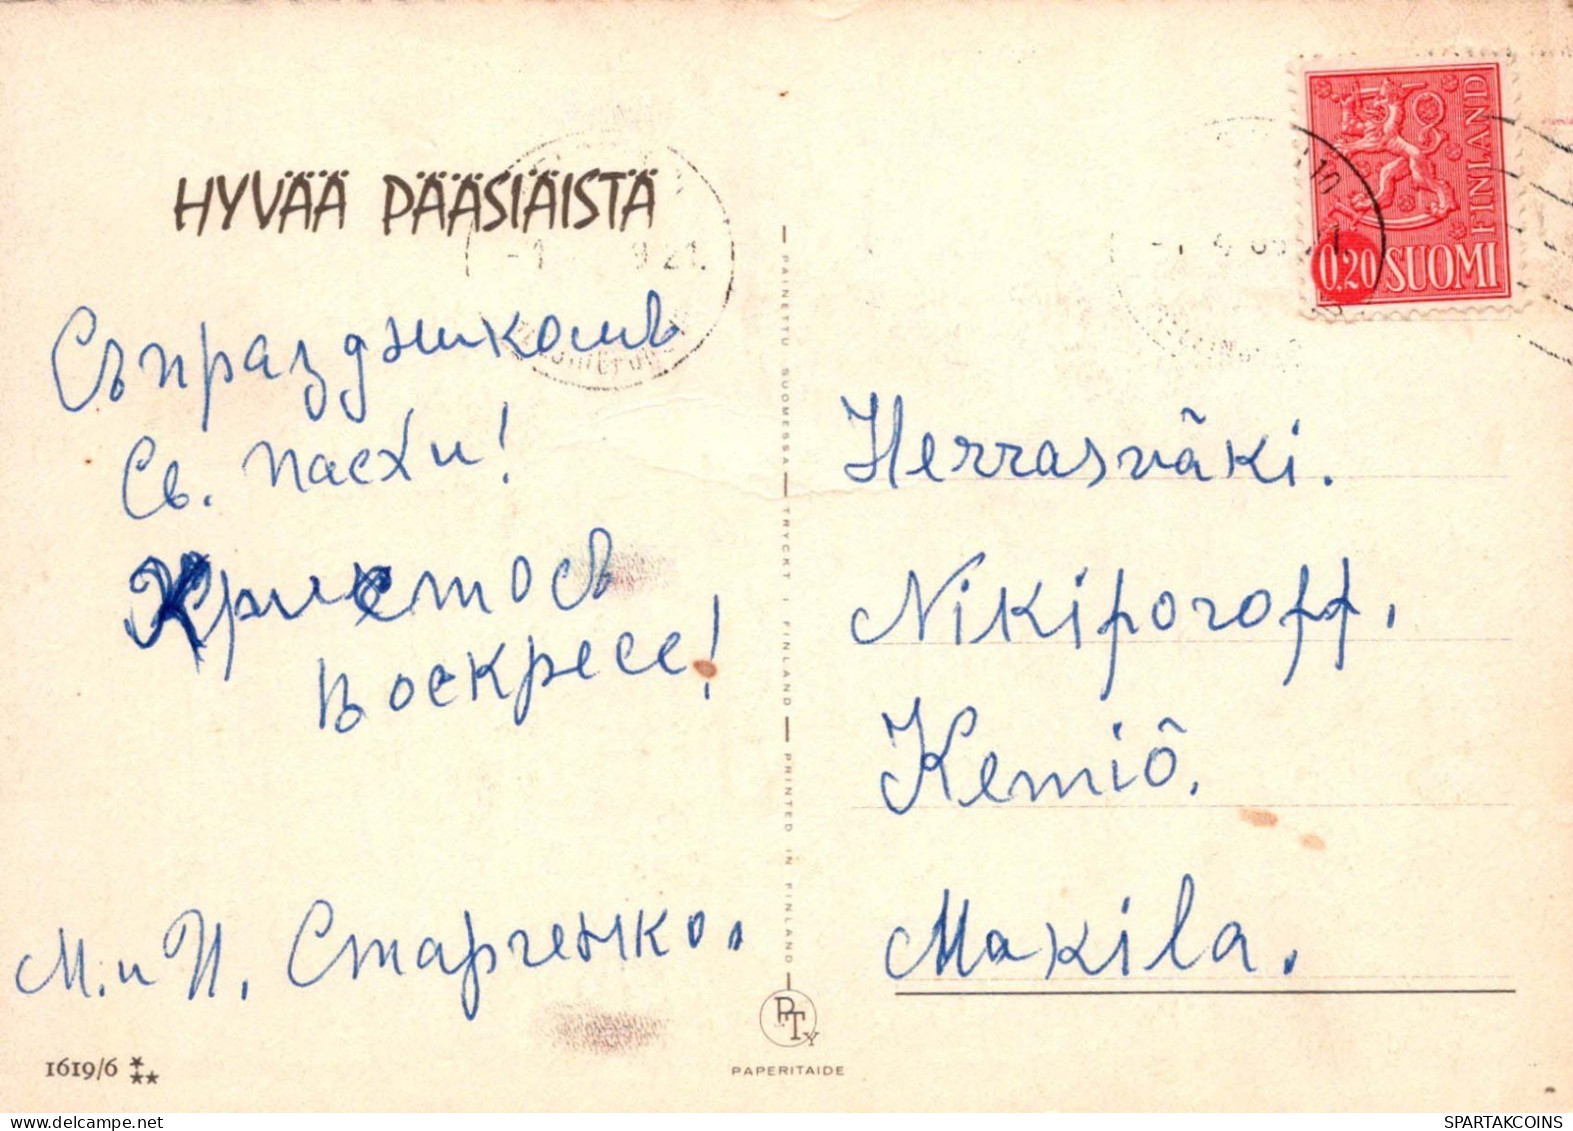 HYVÄÄ PÄÄSIÄISTÄ
Съ праздникомъ
Св. Пасхи!
Христосъ
Воскресе!
М. и И. Старченко.
1619/6
PAINETTU SUOMESSA — TRYCKT I FINLAND — PRINTED IN FINLAND
PTY
PAPERITAIDE
FINLAND
0,20 SUOMI
Herrasväki.
Nikiforoff.
Kemiö.
Makila.
SPARTAKCOINS